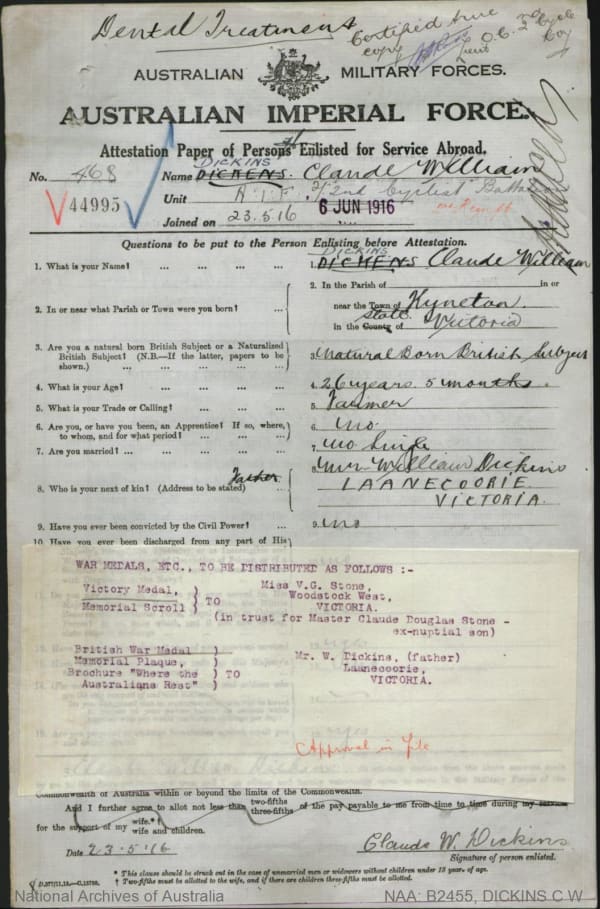 Dental Treatment
Certified true
copy
Lieut O.C. 2nd Cycle
Coy
AUSTRALIAN MILITARY FORCES.
AUSTRALIAN IMPERIAL FORCE.
Attestation Paper of Persons Enlisted for Service Abroad.
DICKINS
No. 468 Name DICKENS. Claude William
44995 Unit A.I.F. 2nd Cyclist Battalion
Joined on 23.5.16 6 JUN 1916
Questions to be put to the Person Enlisting before Attestation.
DICKINS
1. What is your Name? ... ... ... ... 1. DICKENS Claude William
2. In or near what Parish or Town were you born? ... 2. In the Parish of in or
near the Town of Kyneton
State
in the County of Victoria
3. Are you a natural born British Subject or a Naturalized
British Subject? (N.B.—If the latter, papers to be
shown.) ... ... ... ... ... 3. Natural Born British Subject
4. What is your Age? ... ... ... ... 4. 26 years 5 months
5. What is your Trade or Calling? ... ... ... 5. Farmer
6. Are you, or have you been, an Apprentice? If so, where,
to whom, and for what period? ... ... ... 6. no
7. Are you married? ... ... ... ... 7. No Single
Father
8. Who is your next of kin? (Address to be stated) ... 8. Mr William Dickins
LAANECOORIE
VICTORIA.
9. Have you ever been convicted by the Civil Power? ... 9. no
10. Have you ever been discharged from any part of His
WAR MEDALS, ETC., TO BE DISTRIBUTED AS FOLLOWS :-
Victory Medal, ) Miss V.G. Stone,
Memorial Scroll ) TO Woodstock West,
VICTORIA.
(in trust for Master Claude Douglas Stone -
ex-nuptial son)
British War Medal )
Memorial Plaque, ) Mr. W. Dickins, (father)
Brochure "Where the ) TO Laanecoorie,
Australians Rest" ) VICTORIA.
Approval in File
Commonwealth of Australia within or beyond the limits of the Commonwealth.
And I further agree to allot not less than two-fifths three-fifths of the pay payable to me from time to time during my service
for the support of my wife.*† wife and children.
Date 23.5.16 Claude W. Dickins
Signature of person enlisted.
* This clause should be struck out in the case of unmarried men or widowers without children under 18 years of age.
† Two-fifths must be allotted to the wife, and if there are children three-fifths must be allotted.
National Archives of Australia NAA: B2455, DICKINS C W